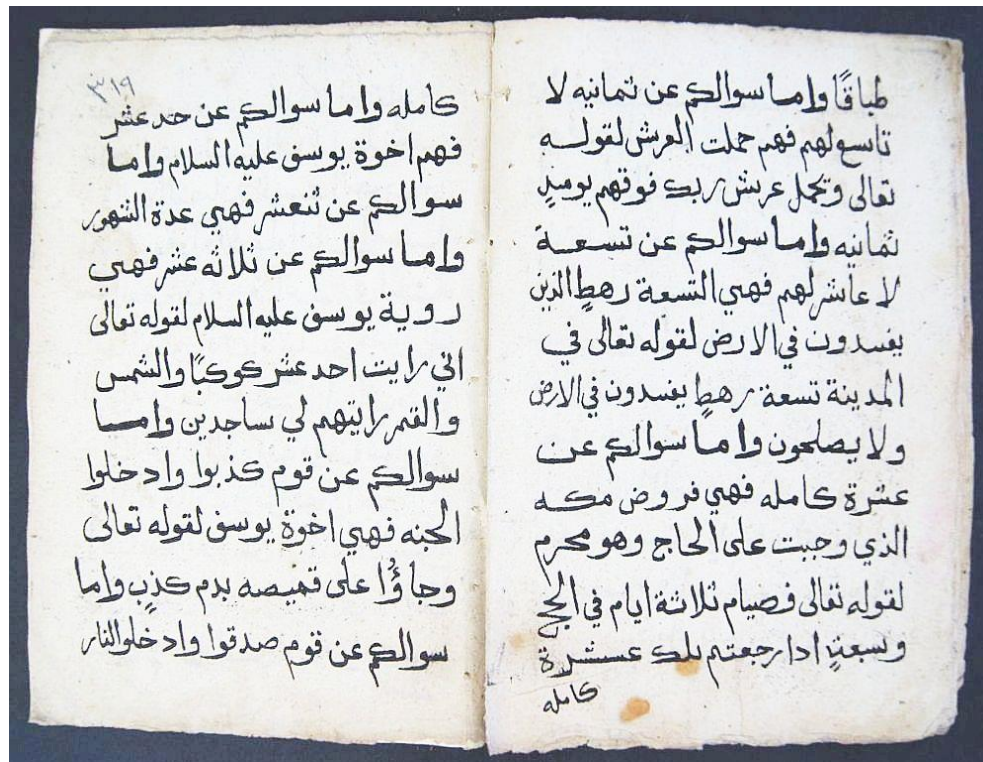 طباقًا واما سوالكم عن تمانيه لا
تاسع لهم فهم حملت العرش لقوله
تعالى وتحمل عرش ربك فوقهم يوميدٍ
تمانيه واما سوالكم عن تسعة
لا عاشر لهم فهي التسعة رهطٍ الذين
يفسدون في الارض لقوله تعالى في
المدينة تسعة رهطٍ يفسدون في الارض
ولا يصلحون واما سوالكم عن
عشرة كامله فهي فروض مكه
الذي وجبت على الحاج وهو محرم
لقوله تعالى فصيام ثلاثة ايام في الحج
وسبعةٍ ادا رجعتم تلك عشرة
كامله
٣١٩
كامله واما سوالكم عن حد عشر
فهم اخوة يوسف عليه السلام واما
سوالكم عن تنعشر فهي عدة الشهور
واما سوالكم عن ثلاثه عشر فهي
روية يوسف عليه السلام لقوله تعالى
اني رايت احد عشر كوكبًا والشمس
والقمر رايتهم لي ساجدين واما
سوالكم عن قوم كذبوا وادخلوا
الجنه فهي اخوة يوسف لقوله تعالى
وجاؤُا على قميصه بدم كذبٍ واما
سوالكم عن قوم صدقوا وادخلوا النار